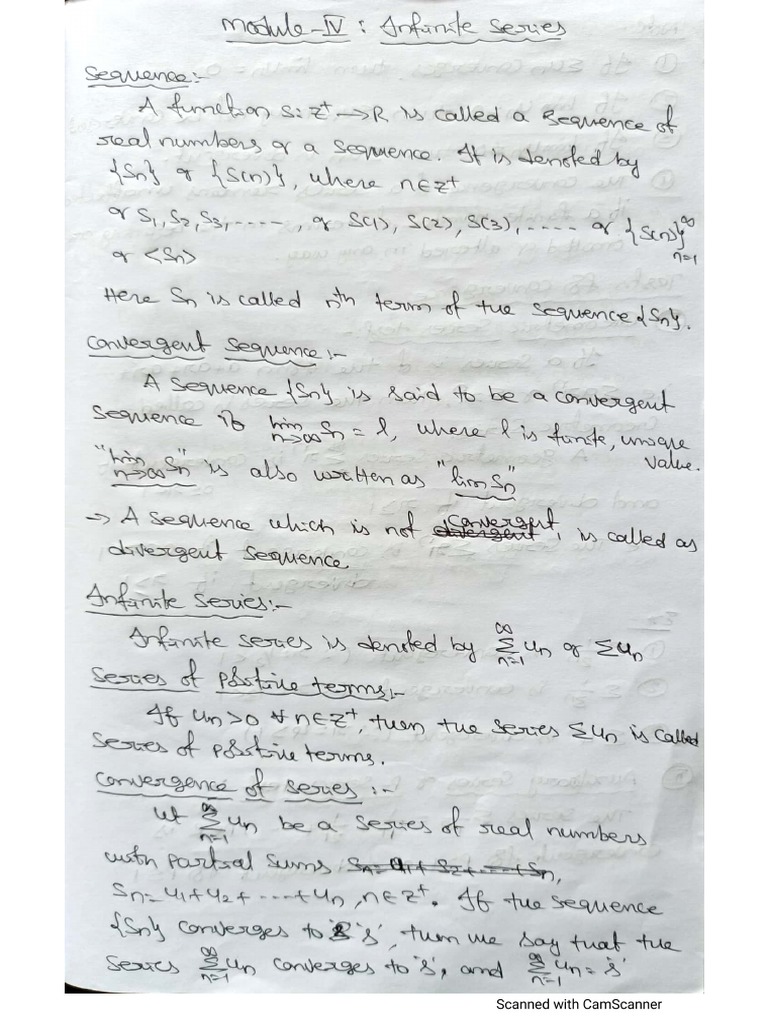 Module-IV : Infinite series
Sequence:-
A function S: Z⁺→R is called a sequence of
real numbers or a sequence. It is denoted by
{Sn} or {S(n)}, where n∈Z⁺
or S₁, S₂, S₃, -----, or S(1), S(2), S(3), ----- or {S(n)}∞n=1
or <Sn>
Here Sn is called nth term of the sequence {Sn}.
Convergent sequence:-
A sequence {Sn} is said to be a convergent
sequence if lim n→∞ Sn = l, where l is finite, unique value.
"lim n→∞ Sn" is also written as "lim Sn"
→ A sequence which is not divergent convergent, is called as
divergent sequence.
Infinite series:-
Infinite series is denoted by ∞Σn=1 un or Σun
Series of positive terms:-
If un>0 ∀ n∈Z⁺, then the series Σun is called
series of positive terms.
Convergence of series :-
Let ∞Σn=1 un be a series of real numbers
with partial sums
Sn = u1+u2+ ---- +un, n∈Z⁺. If the sequence
{Sn} converges to 's', then we say that the
series ∞Σn=1 un converges to 's', and ∞Σn=1 un = 's'
Scanned with CamScanner